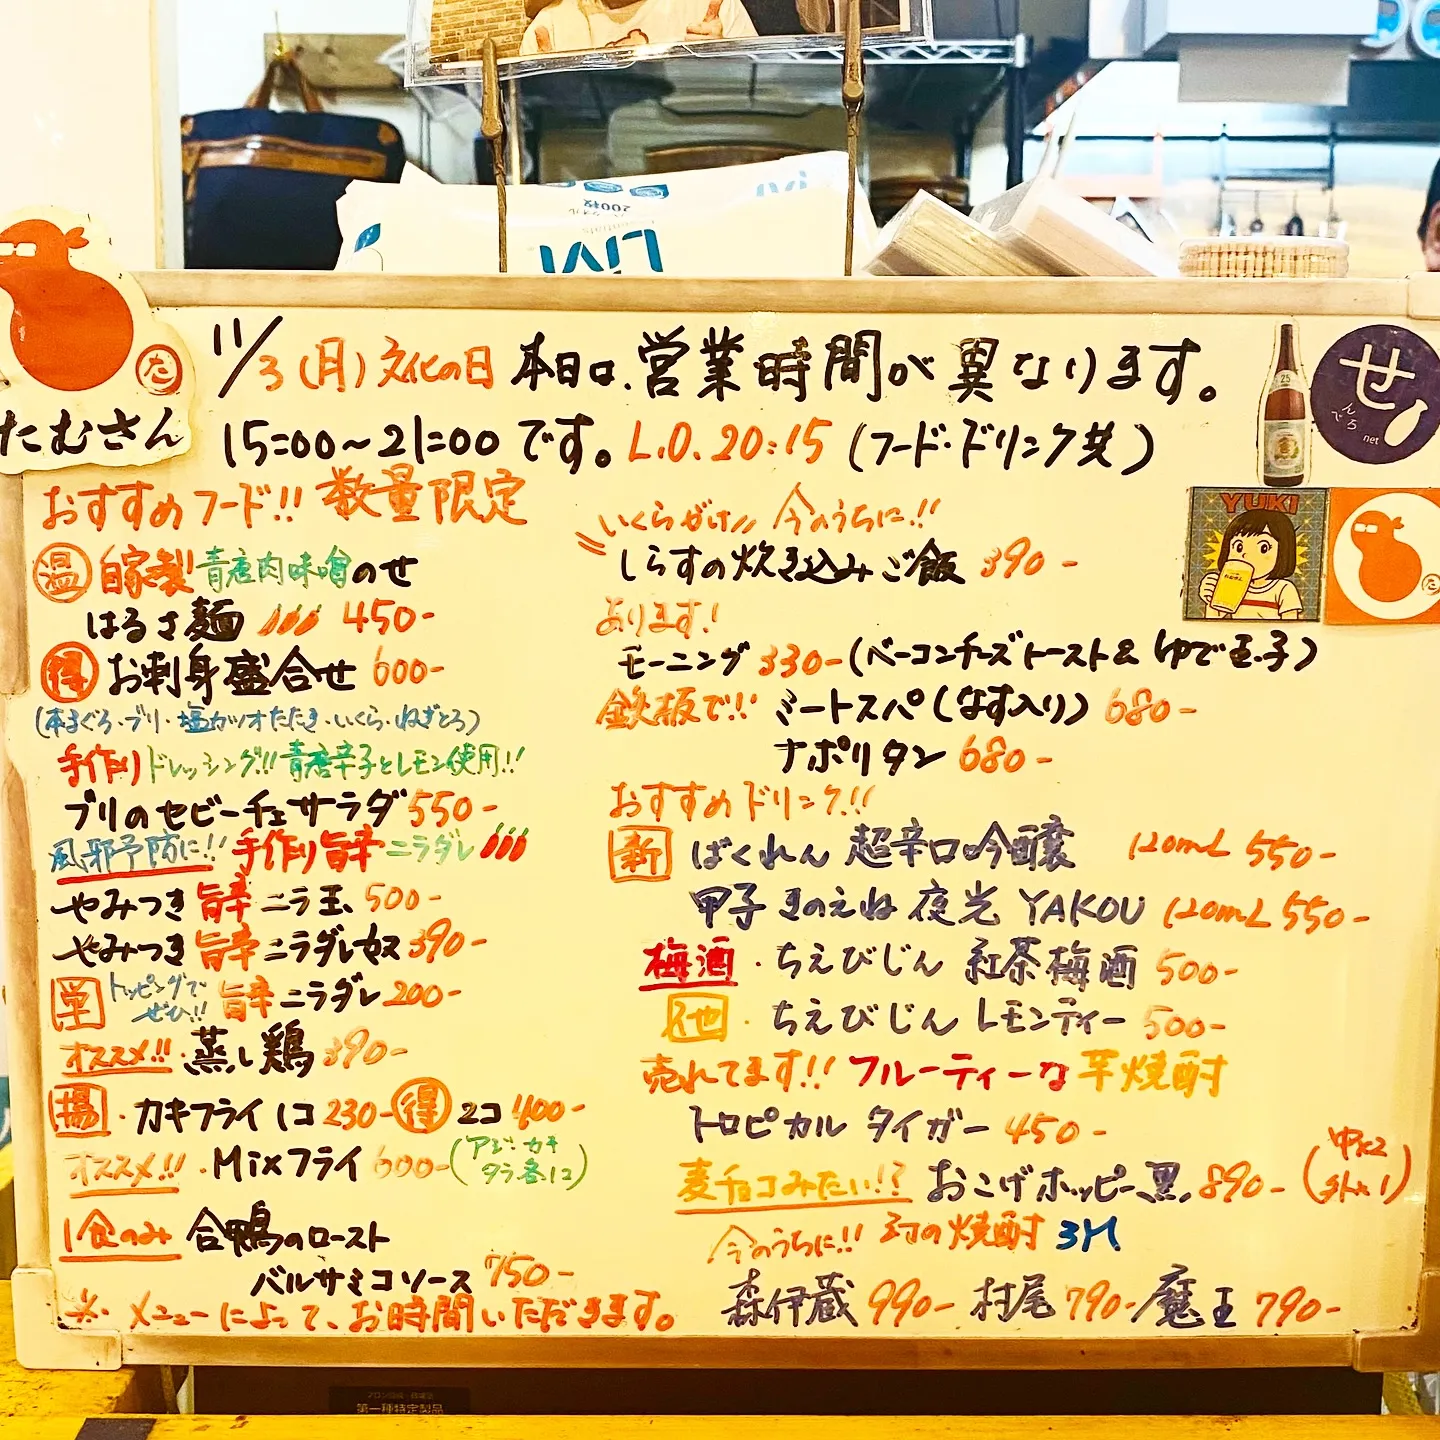 LiVi
200枚
た
たむさん
せ
でんろ
net
25
YUKI
11/3(月)文化の日 本日は、営業時間が異なります。
15:00〜21:00です。L.O.20:15(フード・ドリンク共)
おすすめフード!! 数量限定
温 自家製青唐肉味噌のせ
はるさ麺 450-
得 お刺身盛合せ 600-
(本まぐろ・ブリ・塩カツオたたき・いくら・ねぎとろ)
手作りドレッシング!!青唐辛子とレモン使用!!
ブリのセビーチェサラダ 550-
風邪予防に!! 手作り旨辛ニラダレ
やみつき旨辛ニラ玉 500-
やみつき旨辛ニラダレ奴 390-
単 トッピングでぜひ!! 旨辛ニラダレ 200-
オススメ!!・蒸し鶏 390-
揚・カキフライ 1コ 230- 得 2コ 400-
オススメ!!・Mixフライ 600-(アジ・カキ タラ各1コ)
1食のみ 合鴨のロースト
バルサミコソース 750-
※メニューによって、お時間いただきます。
いくらがけ!! 今のうちに!!
しらすの炊き込みご飯 390-
あります!
モーニング 330-(ベーコンチーズトースト&ゆで玉子)
鉄板で!! ミートスパ(なす入り) 680-
ナポリタン 680-
おすすめドリンク!!
新 ばくれん 超辛口吟醸 120mL 550-
甲子 きのえね 夜光 YAKOU 120mL 550-
梅酒・ちえびじん 紅茶梅酒 500-
他・ちえびじん レモンティー 500-
売れてます!! フルーティーな芋焼酎
トロピカル タイガー 450-
麦チョコみたい!? おこげホッピー黒 890-(中x2 外x1)
今のうちに!! 幻の焼酎 3M
森伊蔵 990- 村尾 790- 魔王 790-
第一種特定製品